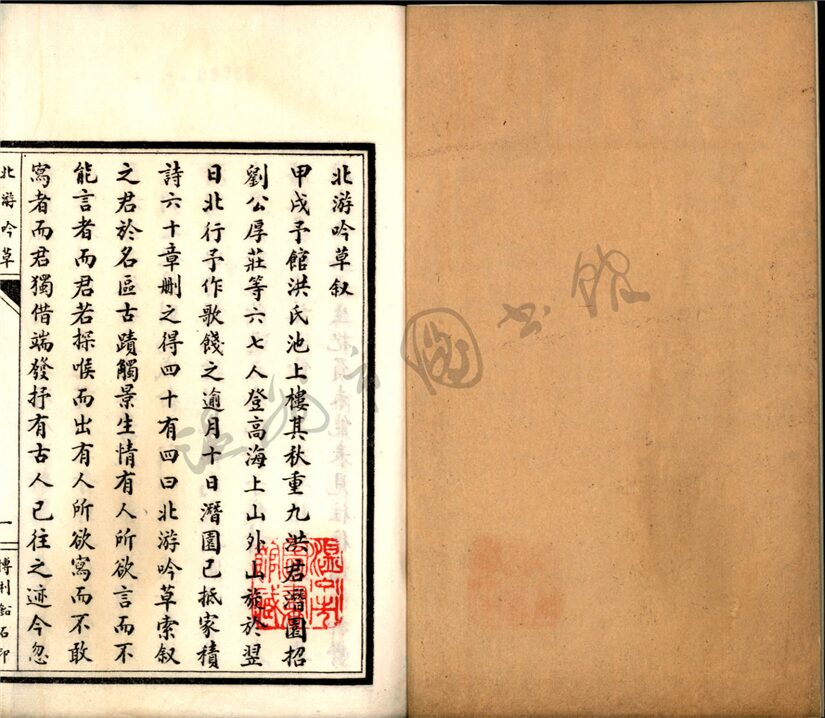 北游吟草叙
甲戌予館洪氏池上樓其秋重九洪君潛園招
劉公厚莊等六七人登高海上山外山旋於翌
日北行予作歌餞之逾月十日潛園已抵家積
詩六十章刪之得四十有四曰北游吟草索叙
之君於名區古蹟觸景生情有人所欲言而不
能言者而君若探喉而出有人所欲寫而不敢
寫者而君獨借端發抒有古人已往之迹今忽
北游吟草
一
博利鉛石印
溫州市圖書館藏
溫州市圖書館